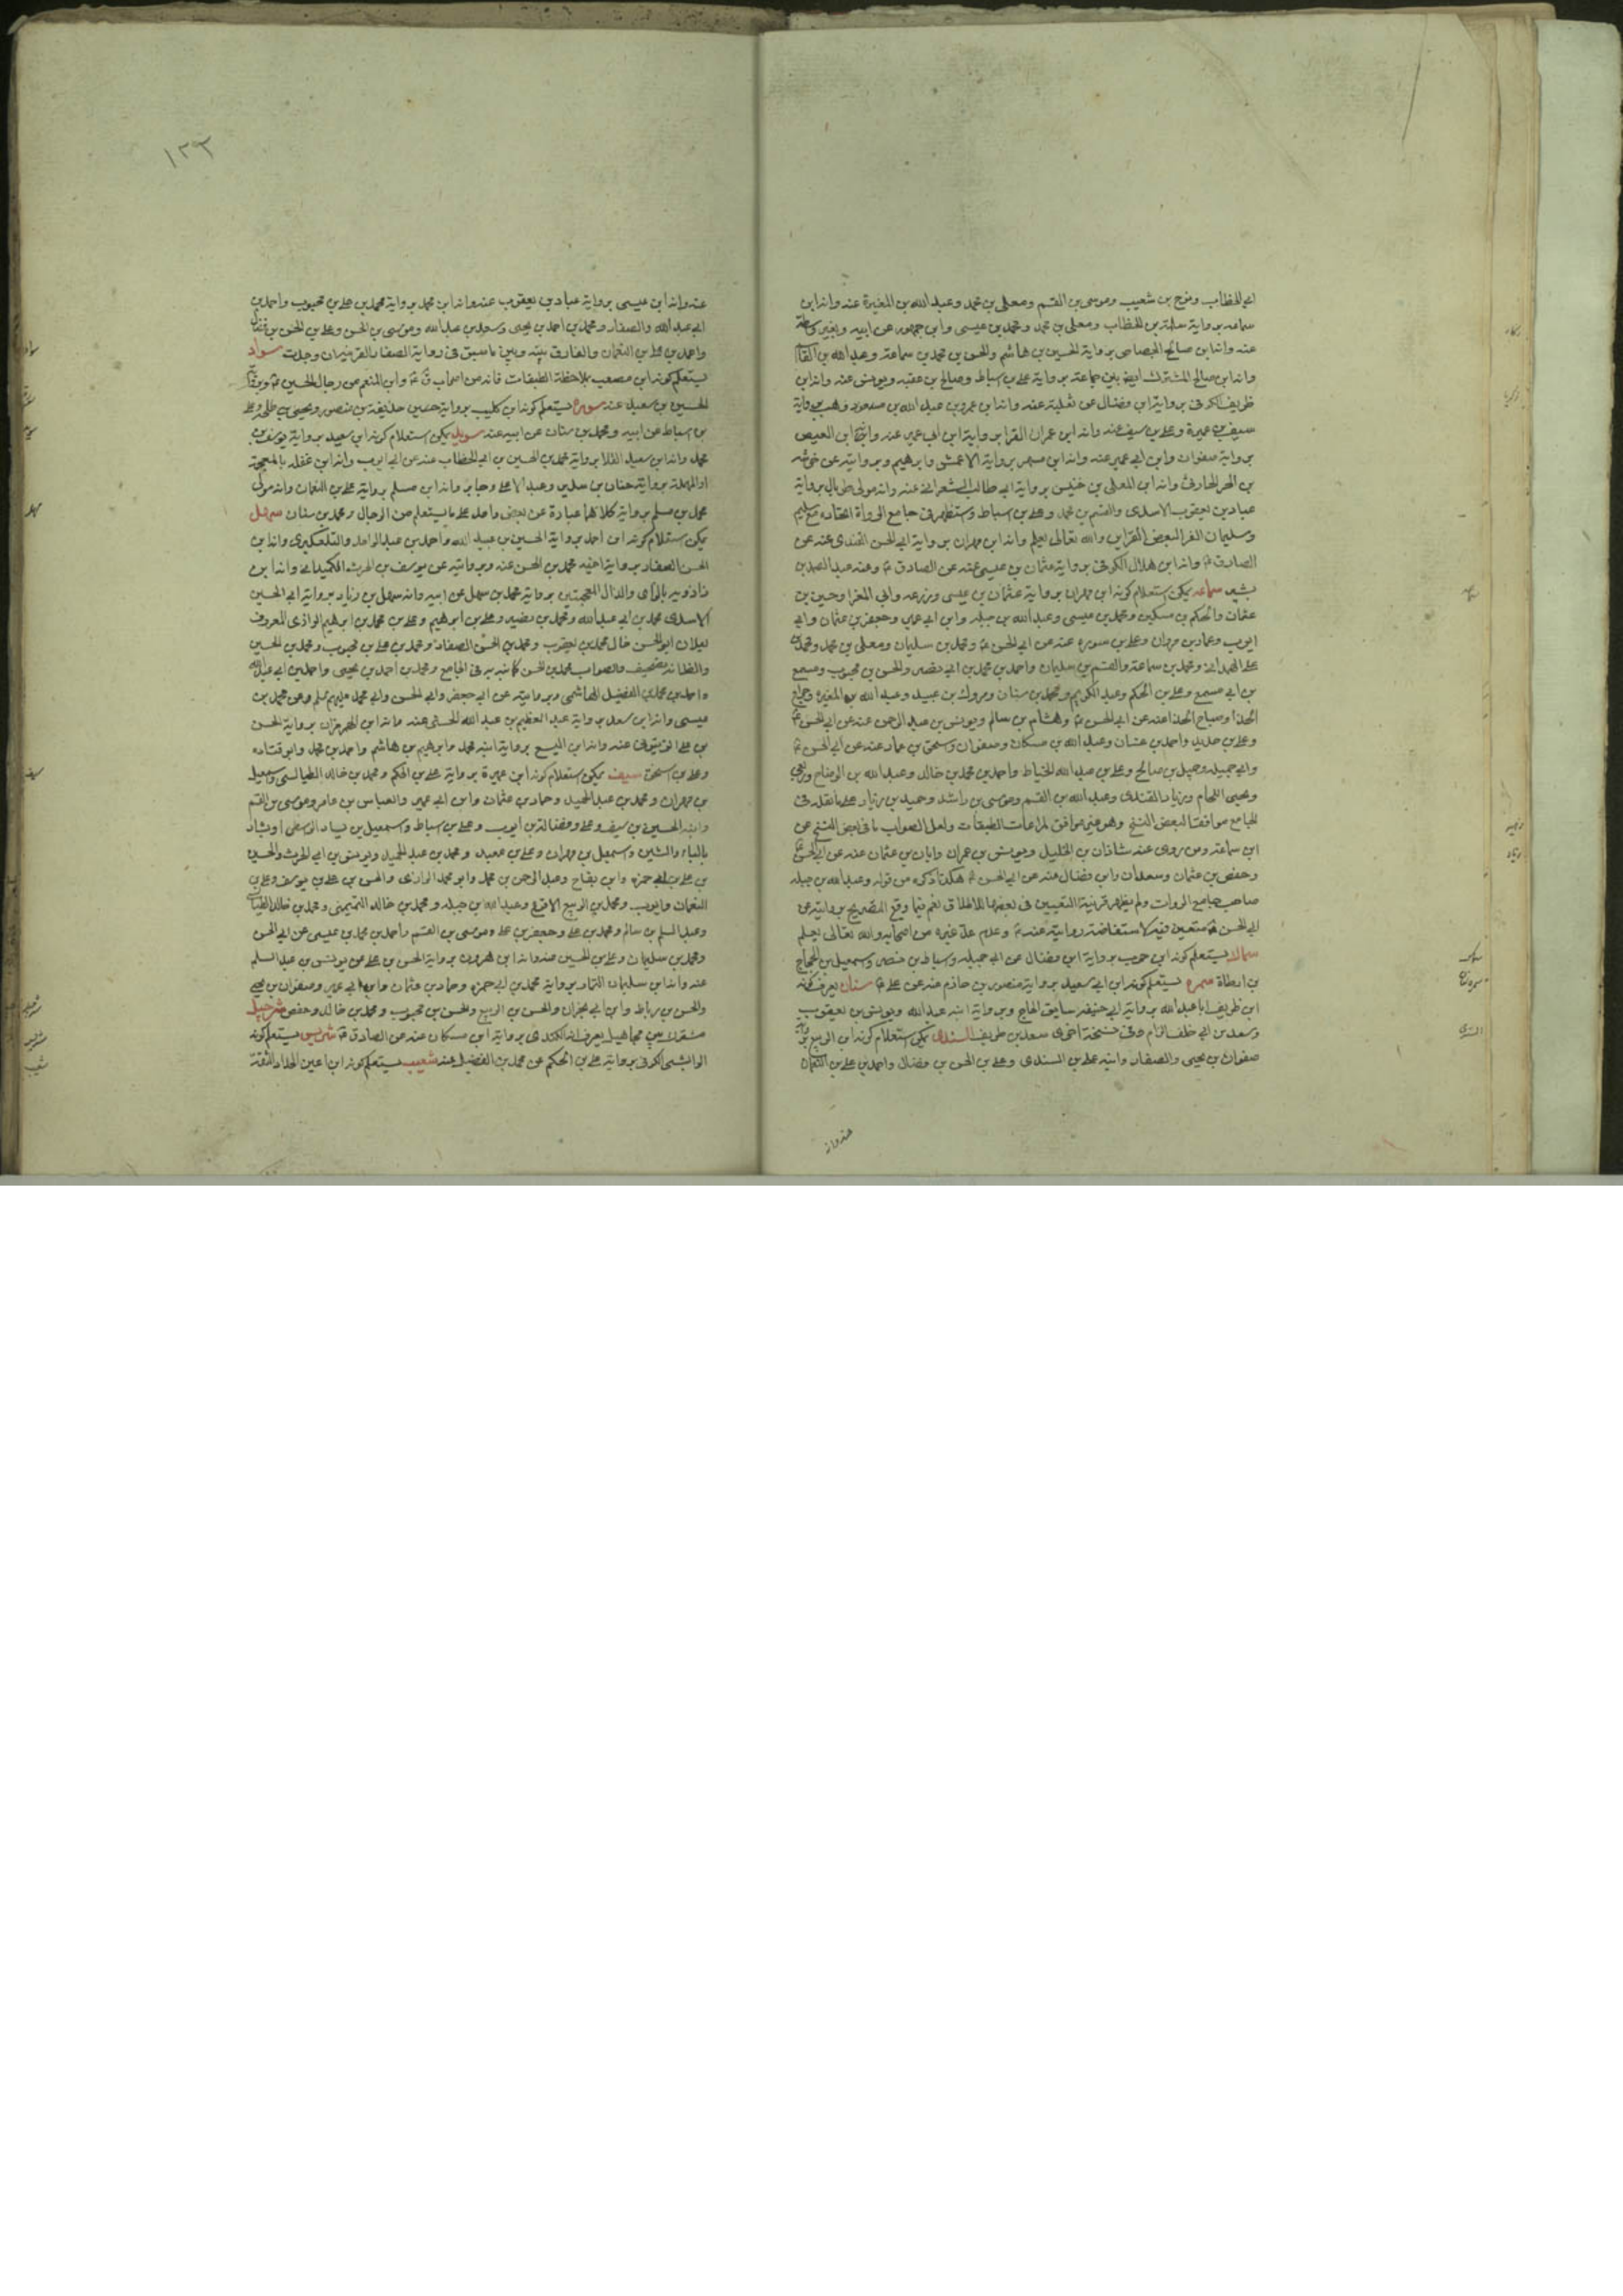 ابي الخطاب ونوح بن شعيب وموسى بن القسم ومعلى بن محمد وعبد الله بن المغيرة عنه وانه ابن
سماعه برواية سلمة بن الخطاب ومعلى بن محمد ومحمد بن عيسى وابن جمهور عن ابيه وبغير واسطة
عنه وانه ابن صالح الجصاص برواية الحسين بن هاشم والحسن بن محمد بن سماعة وعبد الله بن
وانه ابن صالح المشترك ايضا بين جماعة برواية علي بن اسباط وصالح بن عقبه ويونس عنه وانه ابن
ظريف الكوفي برواية ابن فضال عن ثعلبة عنه وانه ابن عمرو بن عبد الله بن وهب برواية
سيف بن عميرة وعلي بن سيف عنه وانه ابن عمران الفرا برواية ابن ابي عمير عنه وانه ابن العيص
برواية صفوان وابن ابي عمير عنه وانه ابن مسهر برواية الاعمش وابرهيم وبروايته عن خرشه
بن الحر الحارثي وانه ابن المعلى بن خنيس برواية ابي طالب الشعراني عنه وانه مولى طربال برواية
عباد بن يعقوب الاسدي والقسم بن محمد وعلي بن اسباط واستظهر في جامع الرواة اتحاده مع سليم
وسليمان الفرا لبعض القراين والله تعالى يعلم وانه ابن مهران برواية ابي الحسن القندي عنه عن
الصادق ع وانه ابن هلال الكوفي برواية عثمان بن عيسى عنه عن الصادق ع وعنه عبد الصمد بن
بشير سماعه يمكن استعلام كونه ابن مهران برواية عثمان بن عيسى وزرعه وابي المغرا وحسين بن
عثمان والحكم بن مسكين ومحمد بن عيسى وعبد الله بن جبله وابن ابي عمير وجعفر بن عثمان وابي
ايوب وعمار بن مروان وعلي بن سوره عنه عن ابي الحسن ع ومحمد بن سليمان ومعلى بن محمد ومحمد بن
علي الهمداني ومحمد بن سماعة والقسم بن سليمان واحمد بن محمد بن ابي نصر والحسن بن محبوب ومسمع
بن ابي مسمع وعلي بن الحكم وعبد الكريم ومحمد بن سنان ومروك بن عبيد وعبد الله بن المغيره
الحذا وصباح الحذا عنه عن ابي الحسن ع وهشام بن سالم ويونس بن عبد الرحمن عنه عن ابي الحسن ع
وعلي بن حديد واحمد بن غسان وعبد الله بن مسكان وصفوان واسحق بن عمار عنه عن ابي الحسن ع
وابي جميله وجميل بن صالح وعلي بن عبد الله الخياط واحمد بن محمد بن خالد وعبد الله بن الوضاح
ويحيى اللحام وزياد القندي وعبد الله بن القسم وموسى بن راشد وحميد بن زياد على ما نقله في
الجامع موافقا لبعض النسخ وهو غير موافق لمراعات الطبقات ولعل الصواب ما في بعض النسخ عن
ابن سماعة ومن روى عنه شاذان بن الخليل ويونس بن عمران وابان بن عثمان عنه عن ابي الحسن ع
وحفص بن عثمان وسعدان وابن فضال عنه عن ابي الحسن ع هكذا ذكره من قوله وعبد الله بن جبله
صاحب جامع الروات ولم يظهر قرينة التعيين في بعضها للاطلاق نعم فيما وقع التصريح بروايته عن
ابي الحسن ع متعين فيه لاستفاضة روايته عنه ع وعدم عد غيره من اصحابه والله تعالى يعلم
سماك يستعلم كونه ابن حرب برواية ابن فضال عن ابي جميله واسباط بن نصر واسمعيل بن الحجاج
بن ارطاة سمره يستعلم كونه ابن ابي سعيد برواية منصور بن حازم عنه عن علي ع سنان يعرف كونه
ابن ظريف ابا عبد الله برواية ابي حنيفه سايق الحاج وبرواية ابنه عبد الله ويونس بن يعقوب
وسعد بن ابي خلف الزام وفي نسخة اخرى سعد بن طريف السندي يمكن استعلام كونه ابن الربيع برواية
صفوان بن يحيى والصفار وابنه علي بن السندي وعلي بن الحسن بن فضال واحمد بن علي بن النعمان
عنه وانه
١٢٣
عنه وانه ابن عيسى برواية عباد بن يعقوب عنه وانه ابن محمد برواية محمد بن علي بن محبوب واحمد بن
ابي عبد الله والصفار ومحمد بن احمد بن يحيى وسعد بن عبد الله وموسى بن الحسن وعلي بن الحسن بن فضال
واحمد بن علي بن النعمان والفارق بينه وبين ما سبق في رواية الصفار القرينة ان وجدت سواد
يستعلم كونه ابن مصعب بملاحظة الطبقات فانه من اصحاب ق ع وابن المنعم من رجال الحسين ع
الحسين بن سعيد عنه سوره يستعلم كونه ابن كليب برواية حسين خليفة بن منصور ويحيى بن طلحه وعلي
بن اسباط عن ابيه ومحمد بن سنان عن ابيه عنه سويد يمكن استعلام كونه ابن سعيد برواية يوسف بن
محمد وانه ابن سعيد القلا برواية محمد بن الحسين بن ابي الخطاب عنه عن ابي ايوب وانه ابن غفله بالمعجمة
او المهملة برواية حنان بن سدير وعبد الاعلى وجابر وانه ابن مسلم برواية علي بن النعمان وانه مولى
محمد بن مسلم برواية كلاهما عبارة عن بعض واحد على ما يستعلم من الرجال ومحمد بن سنان سهل
يمكن استعلام كونه ابن احمد برواية الحسين بن عبيد الله واحمد بن عبد الواحد والتلعكبري وانه ابن
الحسن الصفار برواية اخيه محمد بن الحسن عنه وبروايته عن يوسف بن الحرث الكميداني وانه ابن
زاذويه بالزاي والذال المعجمتين برواية محمد بن سهل عن ابيه وانه سهل بن زياد برواية ابي الحسين
الاسدي محمد بن ابي عبد الله ومحمد بن نصير وعلي بن ابرهيم وعلي بن محمد بن ابرهيم الرازي المعروف
بعلان ابو الحسن خال محمد بن يعقوب ومحمد بن الحسن الصفار ومحمد بن علي بن محبوب ومحمد بن الحسين
والظ انه تصحيف والصواب محمد بن الحسن كما نبه به في الجامع ومحمد بن احمد بن يحيى واحمد بن ابي عبد الله
واحمد بن محمد بن الفضيل الهاشمي وبروايته عن ابي جعفر وابي الحسن وابي محمد عليهم السلم وعن محمد بن
عيسى وانه ابن سعد برواية عبد العظيم بن عبد الله الحسني عنه وانه ابن الهرمزان برواية الحسن
بن علي الزيتوني عنه وانه ابن اليسع برواية ابنه محمد وابرهيم بن هاشم واحمد بن محمد وابو قتاده
وعلي بن اسحق سيف يمكن استعلام كونه ابن عميرة برواية علي بن الحكم ومحمد بن خالد الطيالسي واسمعيل
بن مهران ومحمد بن عبد الحميد وحماد بن عثمان وابن ابي عمير والعباس بن عامر وموسى بن القسم
وابنه الحسين بن سيف وعلي وفضالة بن ايوب وعلي بن اسباط واسمعيل بن يسار الواسطي او بشار
بالباء والشين واسمعيل بن مهران وعلي بن معبد ومحمد بن عبد الحميد ويونس بن ابي الحرث والحسين
بن علي بن ابي حمزه وابن بقاح وعبد الرحمن بن محمد وابو محمد الرازي والحسن بن علي بن يوسف وعلي بن
النعمان وايوب ومحمد بن الربيع الاقرع وعبد الله بن جبله ومحمد بن خالد التميمي ومحمد بن خالد الطيالسي
وعبد السلم بن سالم ومحمد بن علي وجعفر بن علي وموسى بن القسم واحمد بن محمد بن عيسى عن ابي الحسن
ومحمد بن سليمان وعلي بن الحسين عنه وانه ابن هرون برواية الحسن بن علي عن يونس بن عبد السلم
عنه وانه ابن سليمان التمار برواية محمد بن ابي حمزه وحماد بن عثمان وابن ابي عمير وصفوان بن يحيى
والحسن بن رباط وابن ابي نجران والحسن بن ابي الربيع والحسن بن محبوب ومحمد بن خالد وحفص شرحبيل
مشترك بين مجاهيل يعرف انه الكندي برواية ابن مسكان عنه عن الصادق ع شريس يستعلم كونه
الوابشي الكوفي برواية علي بن الحكم عن محمد بن الفضيل عنه شعيب يستعلم كونه ابن اعين الحداد الثقة